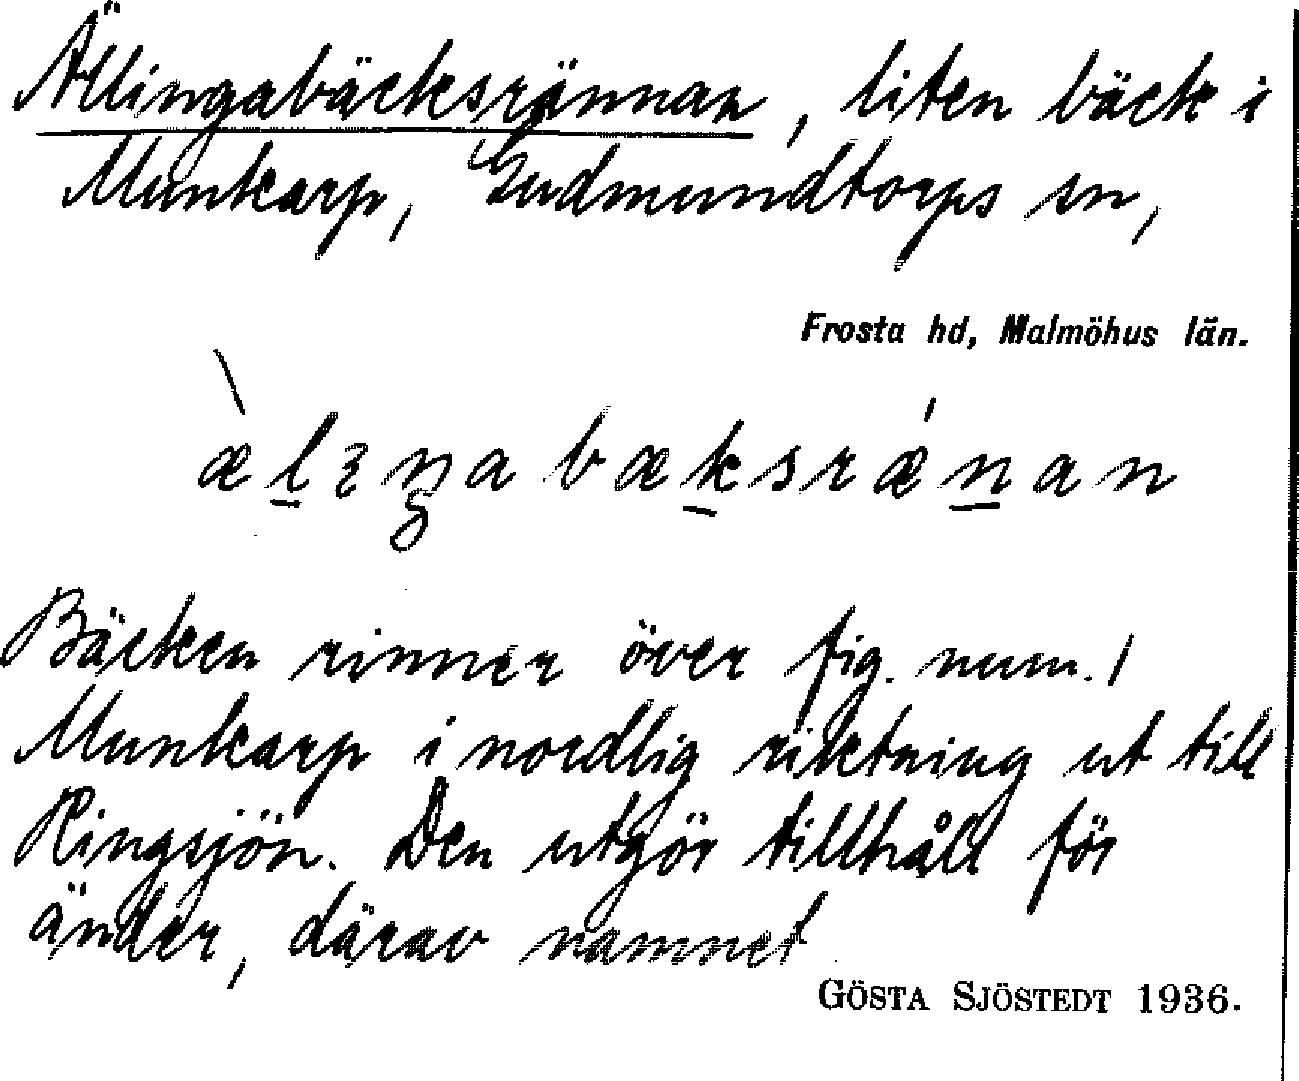 Ällingabäcksrännan, liten bäck i
Munkarp, Gudmundtorps sn,
Frosta hd, Malmöhus län.
Bäcken rinner över fig. num. 1
Munkarp i nordlig riktning ut till
Ringsjön. Den utgör tillhåll för
änder, därav namnet
GÖSTA SJÖSTEDT 1936.